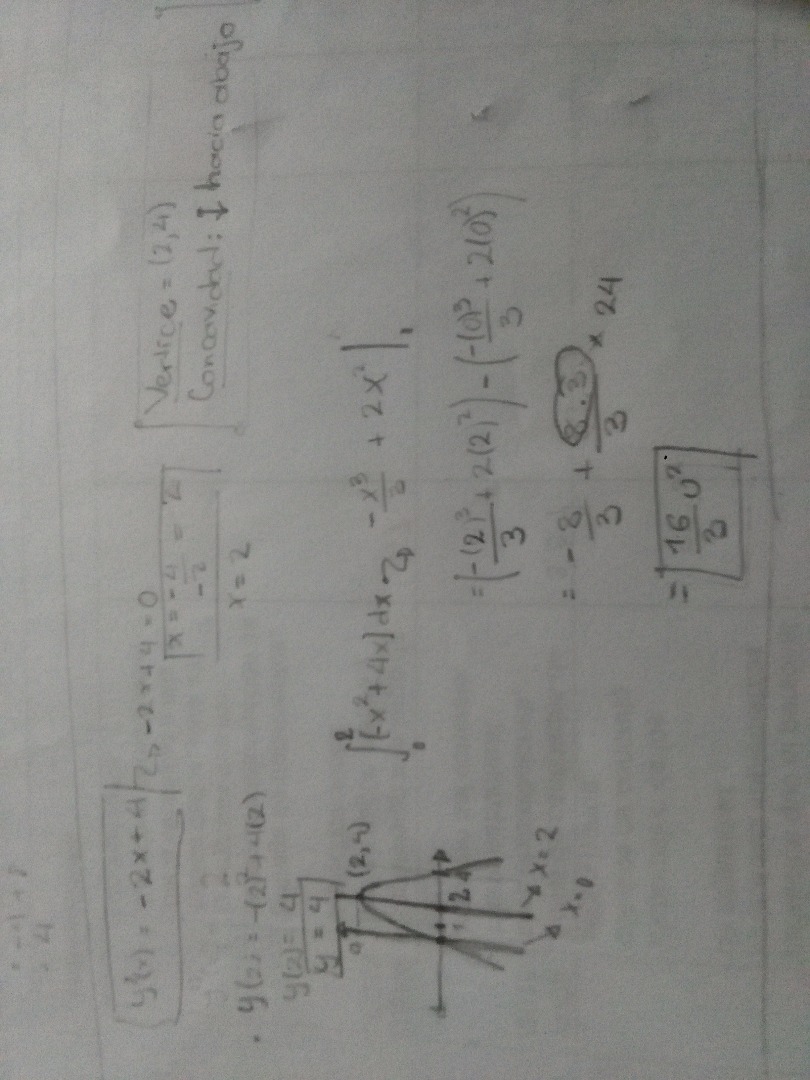 = -4 + 8
= 4
y'(x) = -2x + 4 → -2x + 4 = 0
x = -4/-2 = 2
x = 2
Vertice = (2,4)
Concavidad: ↓ hacia abajo
• y(2) = -(2)² + 4(2)
y(2) = 4
y = 4
(2,4)
0
1 2 4
x=0
x=2
∫₀² [-x² + 4x] dx → -x³/3 + 2x² |
= (-(2)³/3 + 2(2)²) - (-(0)³/3 + 2(0)²)
= -8/3 + 8·3/3 × 24
= 16/3 U²